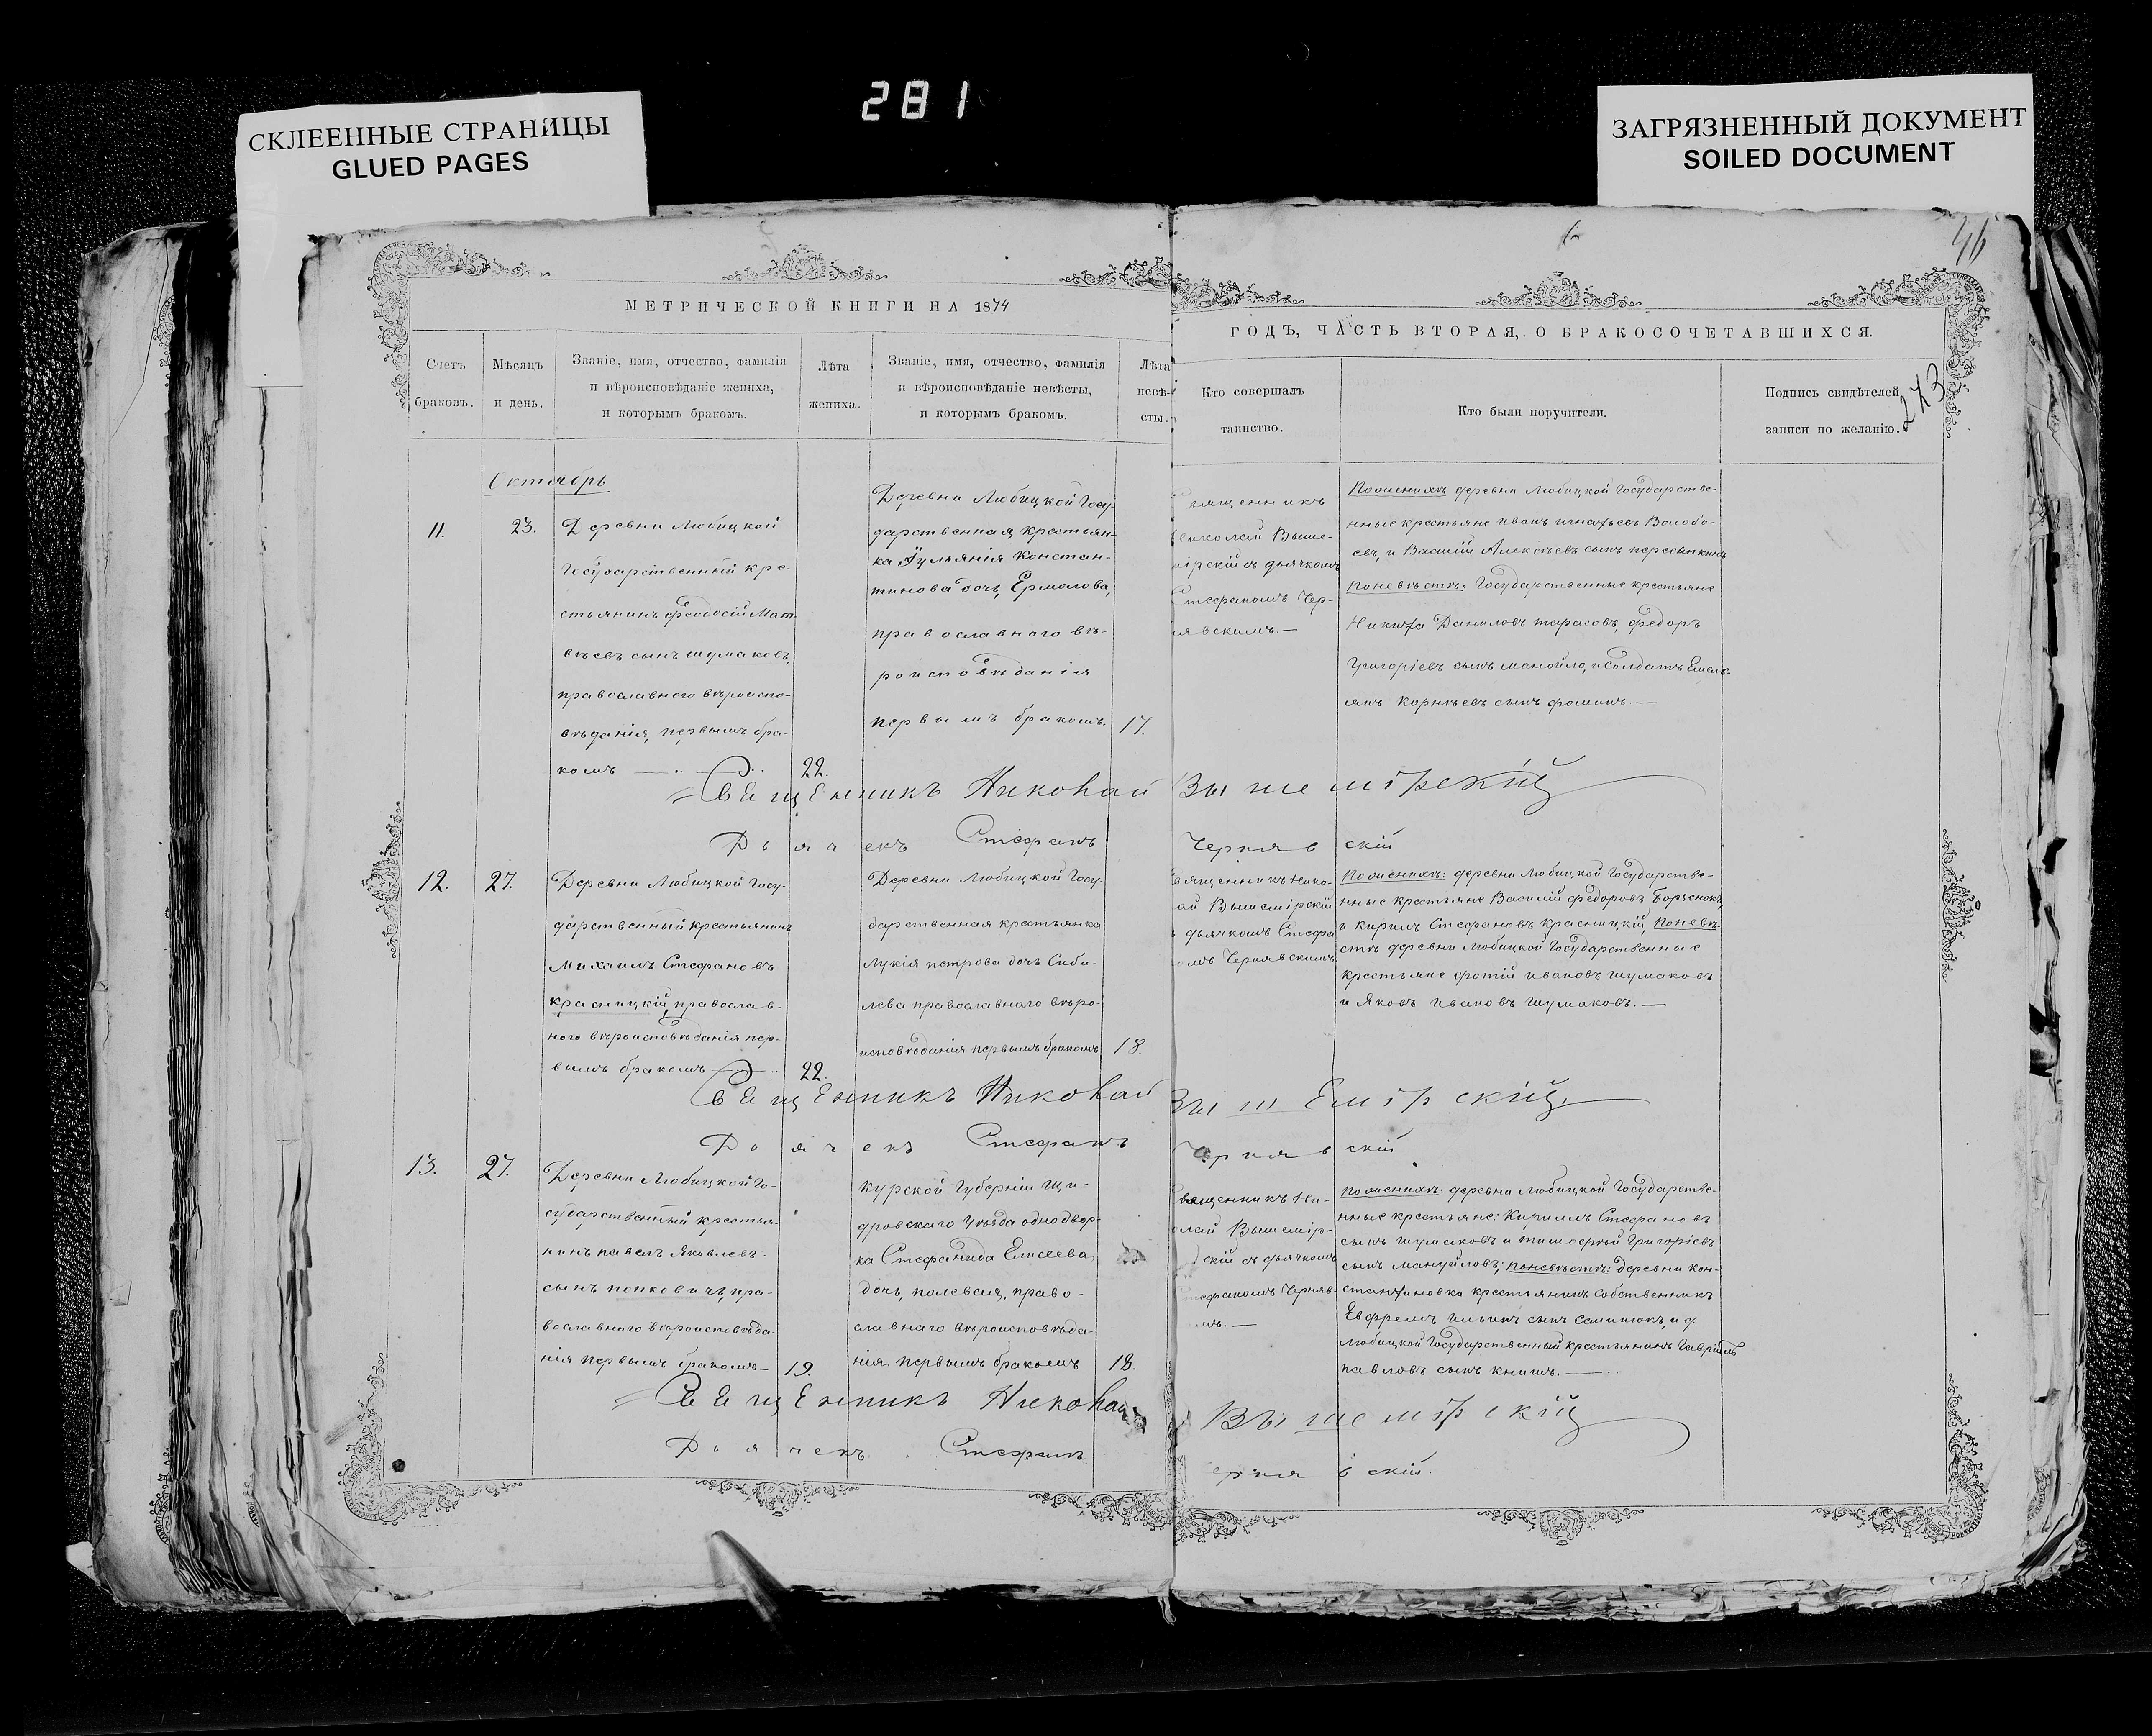 281
СКЛЕЕННЫЕ СТРАНИЦЫ
GLUED PAGES
ЗАГРЯЗНЕННЫЙ ДОКУМЕНТ
SOILED DOCUMENT
46
МЕТРИЧЕСКОЙ КНИГИ НА 1874
Счетъ
браковъ.
Мѣсяцъ
и день.
Званіе, имя, отчество, фамилія
и вѣроисповѣданіе жениха,
и которымъ бракомъ.
Лѣта
жениха.
Званіе, имя, отчество, фамилія
и вѣроисповѣданіе невѣсты,
и которымъ бракомъ.
Лѣта
невѣ-
сты.
ГОДЪ, ЧАСТЬ ВТОРАЯ, О БРАКОСОЧЕТАВШИХСЯ.
Кто совершалъ
таинство.
Кто были поручители.
Подпись свидѣтелей
записи по желанію.
273
Октябрь
11.
23.
Деревни Любицкой
Государственный кре-
стьянинъ Феодосій Мат-
вѣевъ сынъ Шумаковъ,
православного вѣроиспо-
вѣданія, первымъ бра-
комъ —
22.
Деревни Любицкой Госу-
дарственная крестьян-
ка Іульянія Констан-
тинова дочь, Ермолова,
православного вѣ-
роисповѣданія
первымъ бракомъ.
17.
вященникъ
Николай Выше-
мірскій съ дьячкомъ
Стефаномъ Чер-
нявскимъ.—
По женихѣ деревни Любицкой Государстве-
нные крестьяне Иванъ Игнатьевъ Волобо-
евъ, и Василій Алексѣевъ сынъ Пересыпкинъ
По невѣстѣ: Государственные крестьяне
Никита Даниловъ Тарасовъ, Федоръ
Григоріевъ сынъ Манойло, и Солдатъ Емель-
янъ Корнѣевъ сынъ Фоминъ.—
Священникъ Николай Вышемірскій
Дьячекъ Стефанъ Чернявскій
12.
27.
Деревни Любицкой Госу-
дарственный крестьянинъ
Михаилъ Стефановъ
Красницкій, православ-
ного вѣроисповѣданія пер-
вымъ бракомъ —
22.
Деревни Любицкой Госу-
дарственная крестьянка
Лукія Петрова дочь Сиби-
лева православного вѣро-
исповѣданія первымъ бракомъ
18.
вященникъ Нико-
ай Вышемірскій
ъ дьячкомъ Стефа
омъ Чернявскимъ
По женихѣ: деревни Любицкой Государстве-
нные крестьяне Василій Федоровъ
и Кирилъ Стефановъ Красницкій, По невѣ-
стѣ деревни Любицкой Государственные
крестьяне Фотій Ивановъ Шумаковъ
и Яковъ Ивановъ Шумаковъ.—
Священникъ Николай Вышемірскій
Дьячекъ Стефанъ Чернявскій
13.
27.
Деревни Любицкой Го-
сударственный крестья-
нинъ Павелъ Яковлевъ
сынъ Попковичъ, пра-
вославного вѣроисповѣда-
нія первымъ бракомъ—
19.
Курской Губерніи Щи-
гровскаго Уѣзда однодвор-
ка Стефанида Елисеева
дочь, Полевая, право-
славнаго вѣроисповѣда-
нія первымъ бракомъ
18.
вященникъ Ни-
олай Вышемір-
скій съ дьячкомъ
тефаномъ Черняв-
имъ.—
По женихѣ: деревни Любицкой Государстве-
нные крестьяне: Кирилъ Стефановъ
сынъ Шумаковъ и Тимофѣй Григоріевъ
сынъ Мануйловъ; по невѣстѣ: деревни Кон-
стантиновки крестьянинъ собственникъ
Евфремъ Ильинъ сынъ Семинюкъ, и д.
Любицкой Государственный крестьянинъ Гавріилъ
Павловъ сынъ Книшъ.—
Священникъ Николай Вышемірскій
Дьячекъ Стефанъ ернявскій.